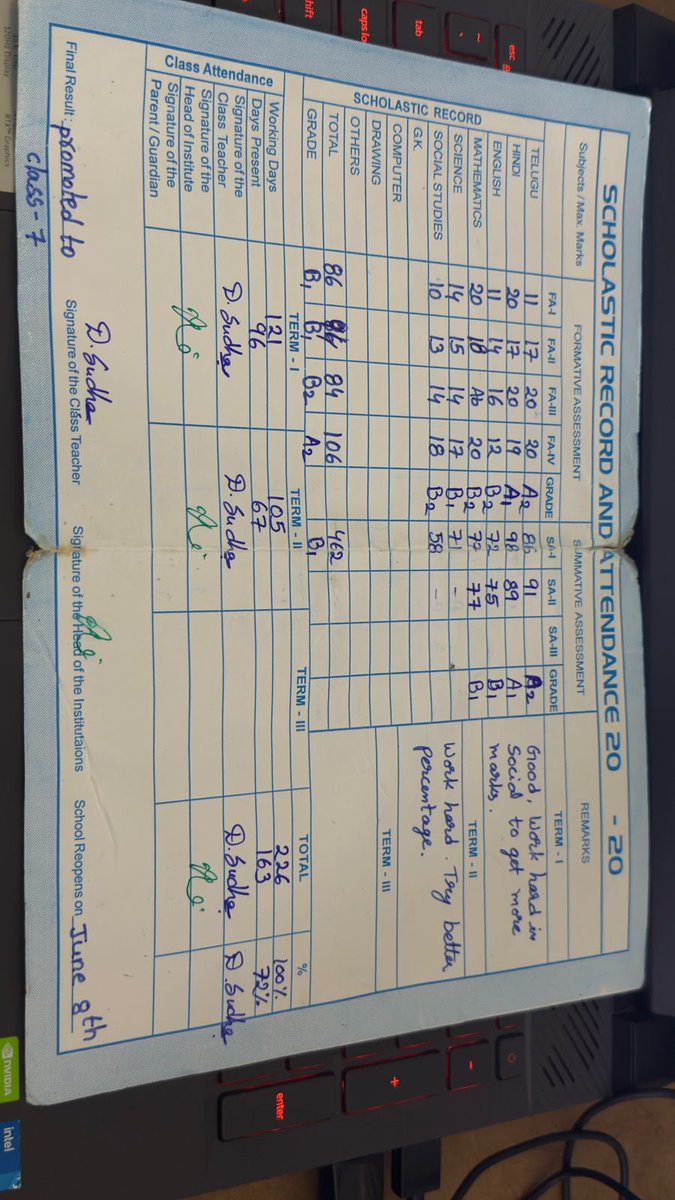 SCHOLASTIC RECORD AND ATTENDANCE 20 - 20
Subjects / Max. Marks FORMATIVE ASSESSMENT SUMMATIVE ASSESSMENT REMARKS
FA-I FA-II FA-III FA-IV GRADE SA-I SA-II SA-III GRADE TERM - I
SCHOLASTIC RECORD
TELUGU 11 17 20 20 A2 86 91 A2
HINDI 20 17 20 19 A1 98 89 A1
ENGLISH 11 14 16 12 B2 72 75 B1
MATHEMATICS 20 18 Ab 20 B2 77 77 B1
SCIENCE 14 15 14 17 B1 71 -
SOCIAL STUDIES 10 13 14 18 B2 58 -
G.K.
COMPUTER
DRAWING
OTHERS
TOTAL 86 84 106 462
GRADE B1 B1 B2 A2 B1
Good, Work hard in
Social to get more
marks.
TERM - II
Work hard. Try better
percentage.
TERM - III
Class Attendance
TERM - I TERM - II TERM - III TOTAL %
Working Days 121 105 226 100%
Days Present 96 67 163 72%
Signature of the
Class Teacher D. Sudha D. Sudha D. Sudha D. Sudha
Signature of the
Head of Institute
Signature of the
Parent / Guardian
Final Result : promoted to
class - 7
D. Sudha
Signature of the Class Teacher Signature of the Head of the Institutaions School Reopens on June 8th
esc
tab
caps lo
shift
enter
120Hz Display
RTX™ Graphics
NVIDIA
intel